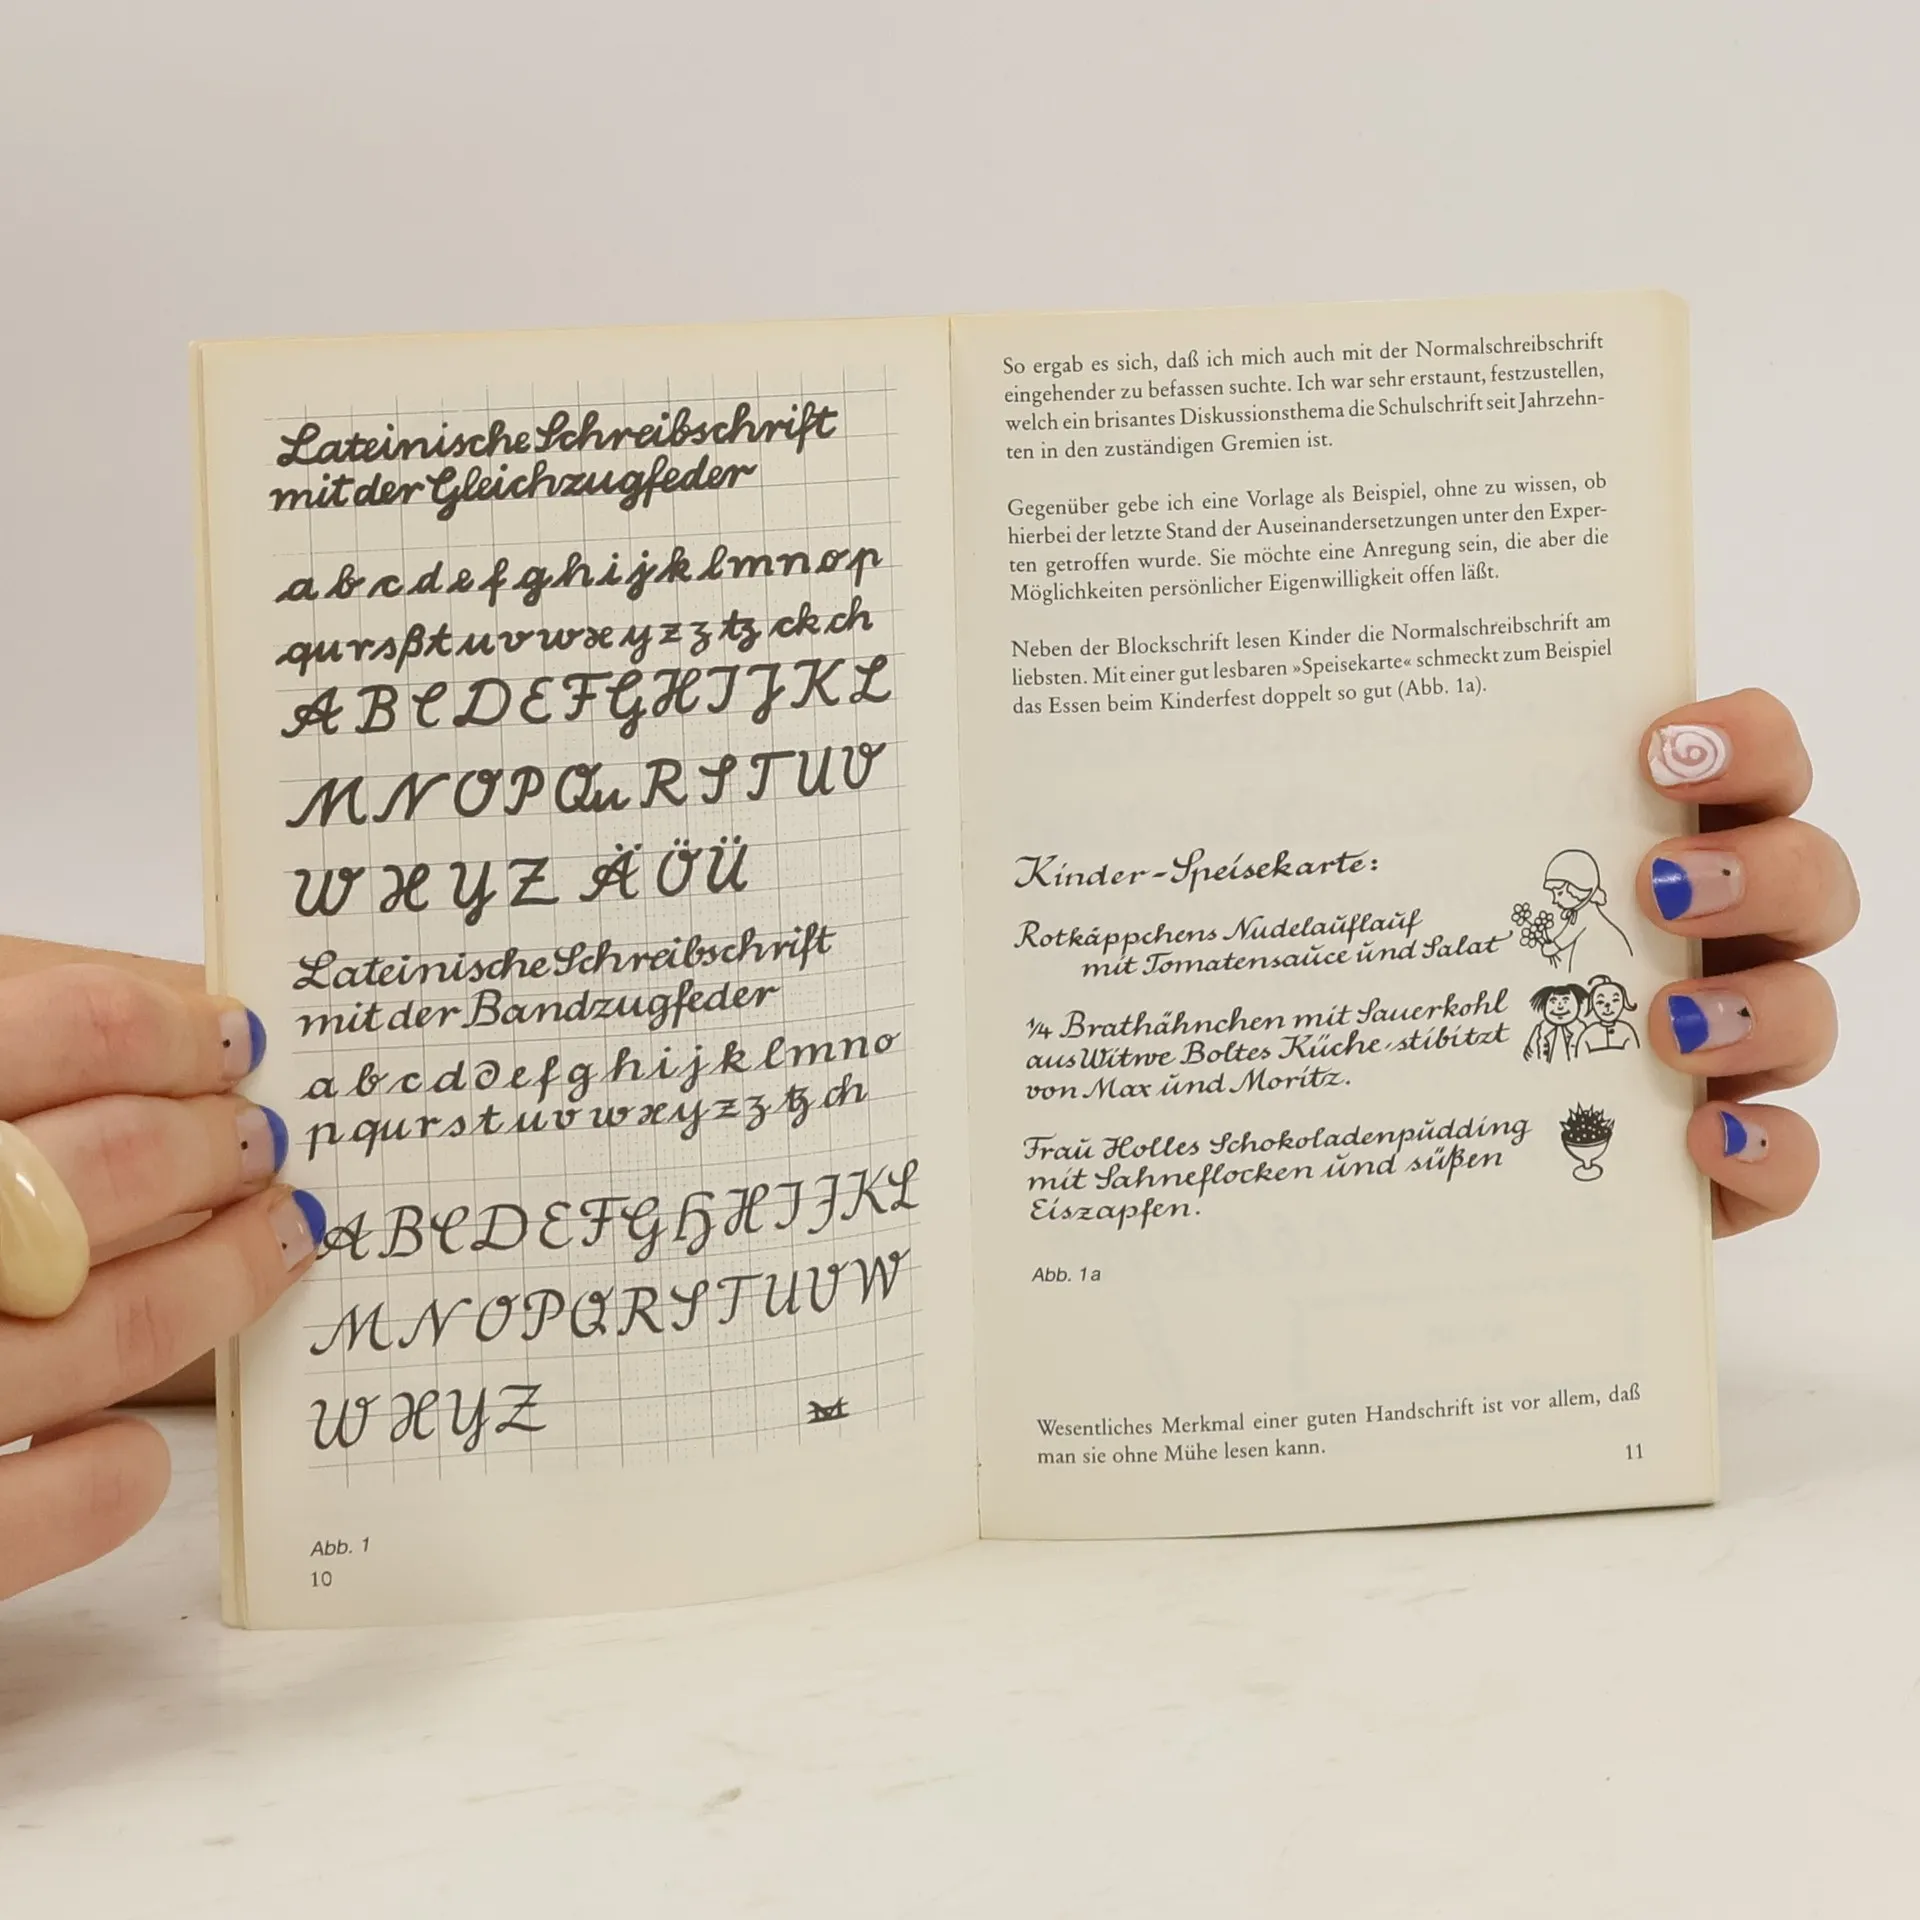 Lateinische Schreibschrift
mit der Gleichzugfeder
a b c d e f g h i j k l m n o p
qu r s ß t u v w x y z ʒ tz ck ch
A B C D E F G H I J K L
M N O P Qu R S T U V
W X Y Z Ä Ö Ü
Lateinische Schreibschrift
mit der Bandzugfeder
a b c d ∂ e f g h i j k l m n o
p qu r s t u v w x y z ʒ tz ch
A B C D E F G H H I J K L
M N O P Q R S T U V W
W X Y Z
Abb. 1
10
So ergab es sich, daß ich mich auch mit der Normalschreibschrift
eingehender zu befassen suchte. Ich war sehr erstaunt, festzustellen,
welch ein brisantes Diskussionsthema die Schulschrift seit Jahrzehn-
ten in den zuständigen Gremien ist.
Gegenüber gebe ich eine Vorlage als Beispiel, ohne zu wissen, ob
hierbei der letzte Stand der Auseinandersetzungen unter den Exper-
ten getroffen wurde. Sie möchte eine Anregung sein, die aber die
Möglichkeiten persönlicher Eigenwilligkeit offen läßt.
Neben der Blockschrift lesen Kinder die Normalschreibschrift am
liebsten. Mit einer gut lesbaren »Speisekarte« schmeckt zum Beispiel
das Essen beim Kinderfest doppelt so gut (Abb. 1a).
Kinder-Speisekarte:
Rotkäppchens Nudelauflauf
mit Tomatensauce und Salat
¼ Brathähnchen mit Sauerkohl
aus Witwe Boltes Küche, stibitzt
von Max und Moritz.
Frau Holles Schokoladenpudding
mit Sahneflocken und süßen
Eiszapfen.
Abb. 1a
Wesentliches Merkmal einer guten Handschrift ist vor allem, daß
man sie ohne Mühe lesen kann.
11